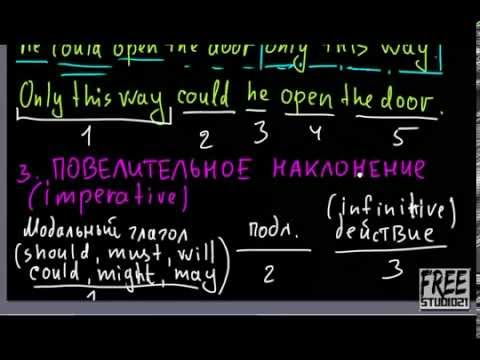 he could open the door only this way.
Only this way could he open the door.
1 2 3 4 5
3. ПОВЕЛИТЕЛЬНОЕ НАКЛОНЕНИЕ
(imperative)
Модальный глагол
(should, must, will
could, might, may)
1
подл.
2
(infinitive)
действие
3
FREE
STUDIO21